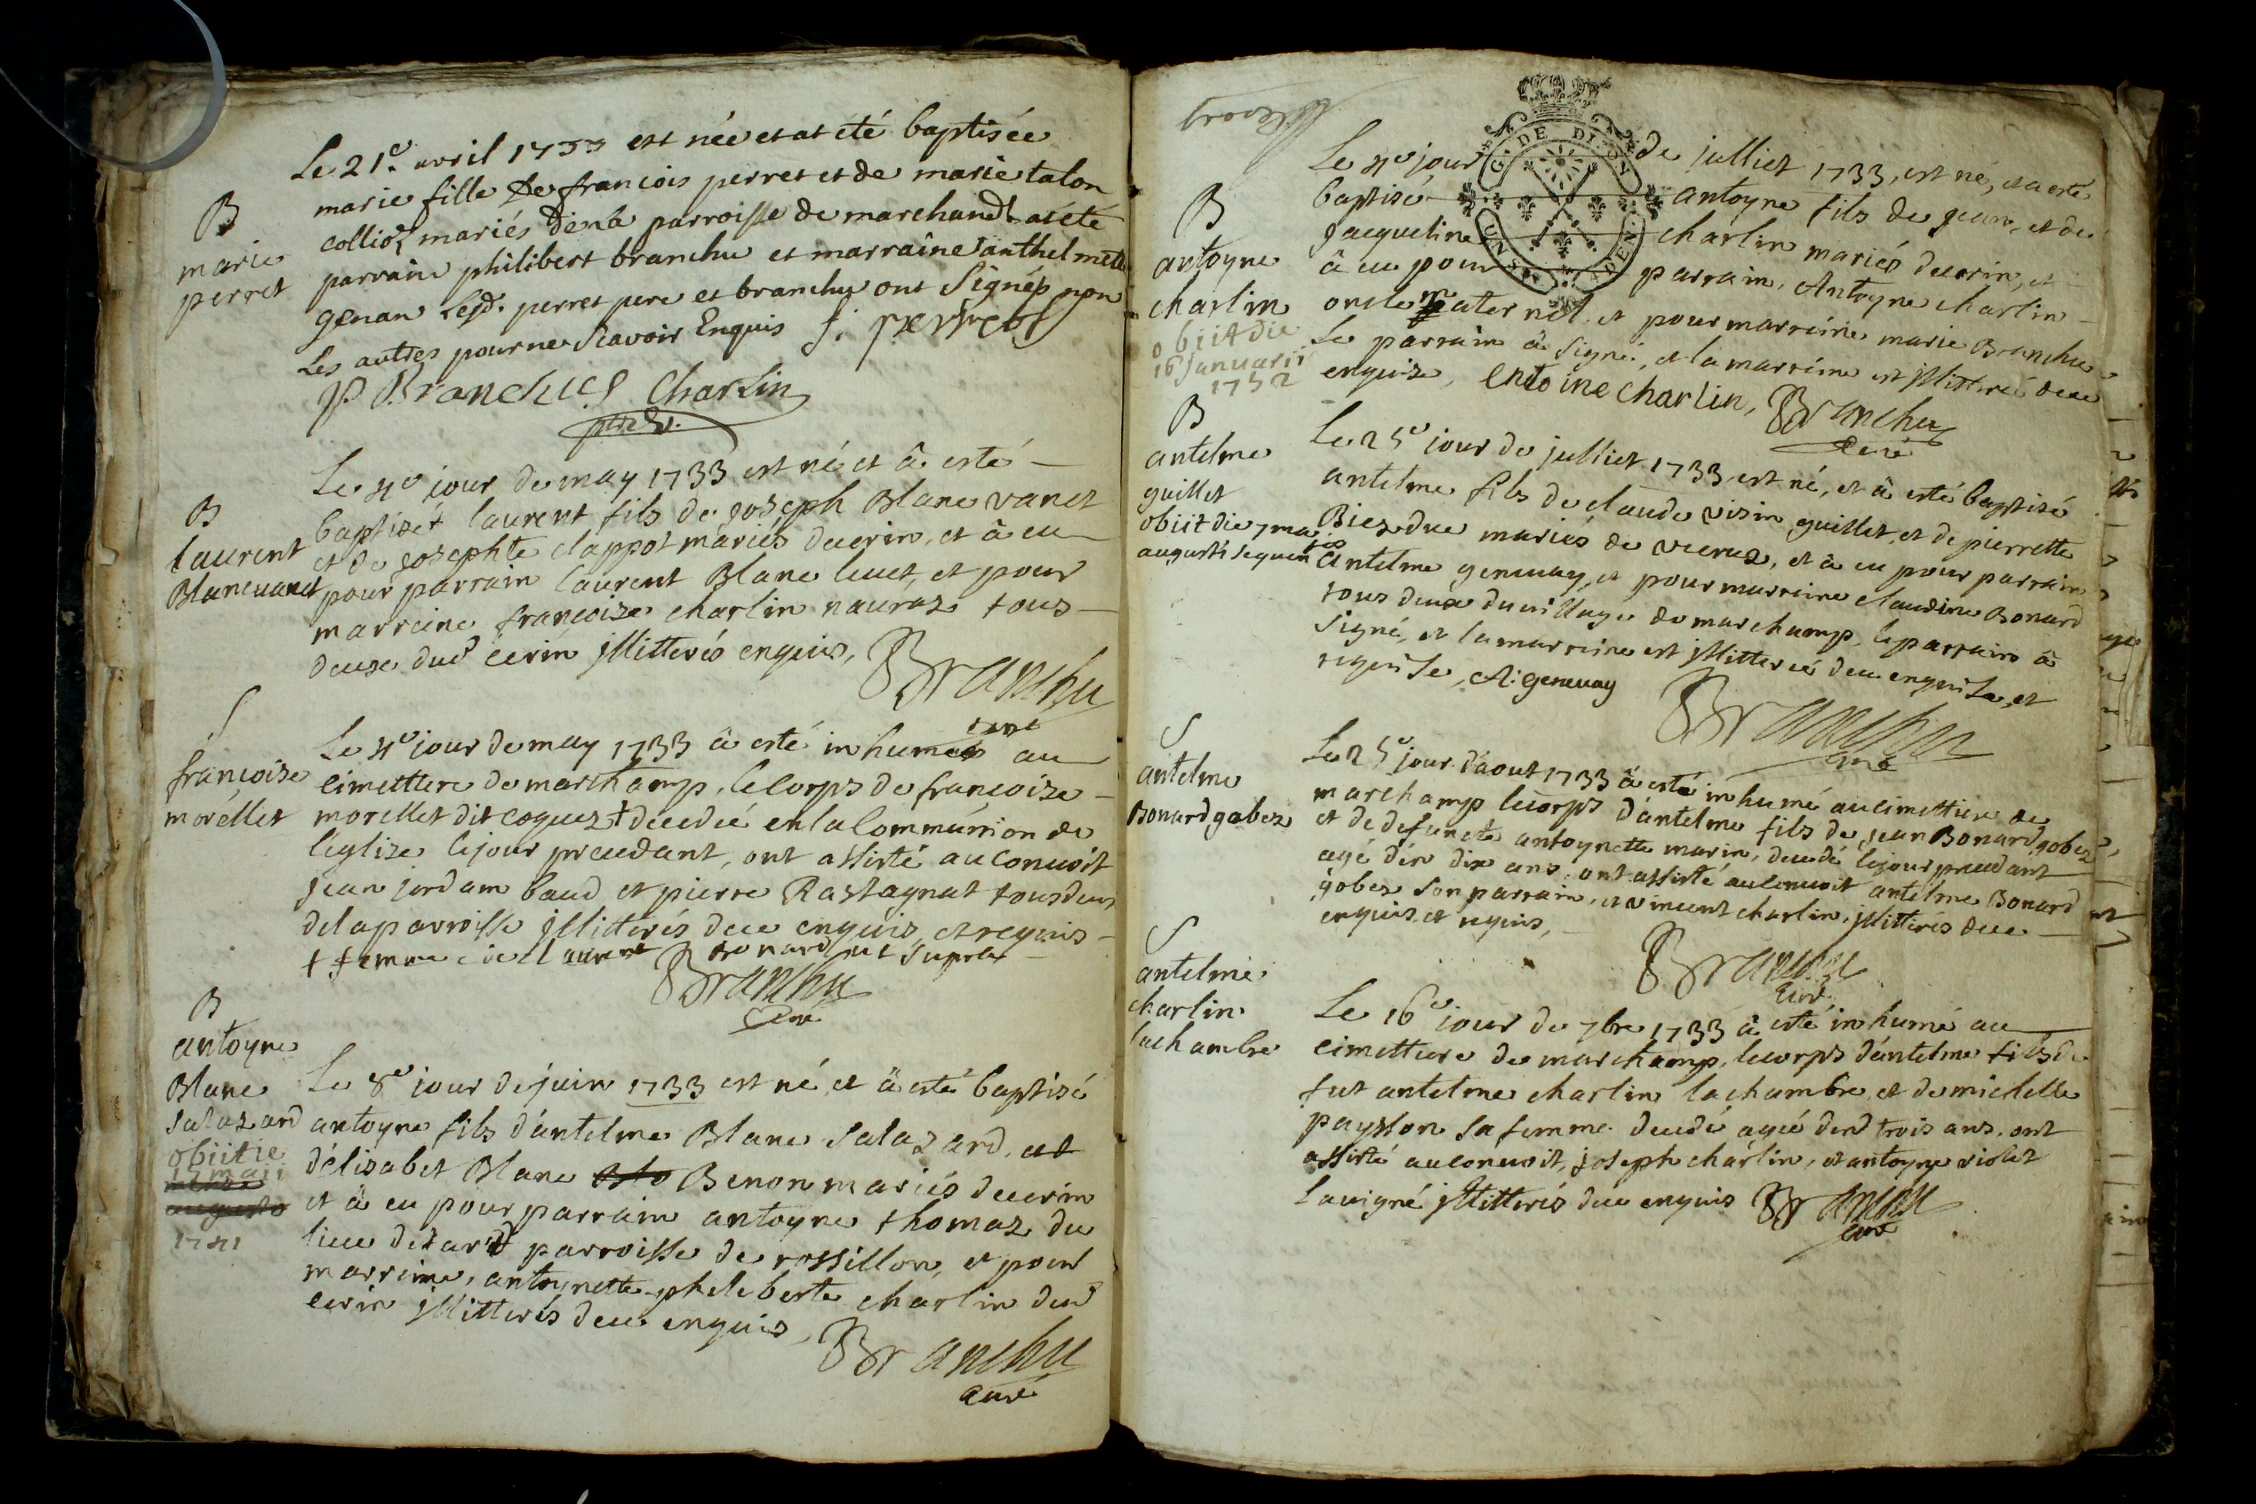 Le 21e. avril 1733 est née et at eté baptisée
B
marie
perret
marie fille de francois perret et de marie talon
colliod mariés de la parroisse de marchand at eté
parrain philibert branchu et marraine anthelmette
genan Lesd. perret pere et branchu ont Signés non
Les autres pour ne Scavoir Enquis f. perret
P Branchu Charlin
ptre
B
laurent
Blancvanet
Le 4e jour de may 1733 est né et â esté
baptisé laurent fils de joseph Blanc vanet
et de josephte clappot mariés de cerin, et â eu
pour parrain laurent Blanc levet, et pour
marreine francoise charlin nauraz tous
deux dud cerin jllitterés enquis,
Branchu
curé
S
francoise
morellet
Le 4e jour de may 1733 â esté inhumée au
cimettiere de marchamp, le corps de francoise
morellet dit coquez + decedée en la Communion de
l'eglize le jour precedant, ont assisté au Convoit
jean jordam baud et pierre Rastagnat tous deux
de la parroisse jllitterés de ce enquis, et requis
+ femme de laurent Bonard ut supra
Branchu
Curé
B
antoyne
Blanc
salazard
obiit die
17 maii
augusto
1741
Le 8e jour de juin 1733 est né et â esté baptisé
antoyne fils d'antelme Blanc salazard, et
d'élisabet Blanc Benon mariés de cerin
et â eu pour parrain antoyne thomaz du
lieu detard parroisse de rossillon, et pour
marreine, antoynette pheleberte charlin dud
cerin jllitterés de ce enquis,
Branchu
curé
B
antoyne
charlin
obiit die
16 januarii
1752
Le 4e jour de julliet 1733, est né, et a esté
baptisé antoyne fils de jean, et de
jacqueline charlin mariés de cerin, et
â eu pour parrain, Antoyne charlin
oncle maternel, et pour marreine marie Branchu
Le parrain â signé, et la marreine est jllitterée de ce
enquize, entoine charlin, Branchu
curé
G. DE DIJON
B
antelme
guillet
obiit die 7ma
augusti sequentis
Le 25e jour de julliet 1733 est né, et â esté baptisé
antelme fils de claude visin guillet, et de pierrette
Biezdue mariés de vieruz, et â eu pour parrain
antelme genevay, et pour marreine claudine Bonard
tous deux du village de marchamp, le parrain â
signé, et la marreine est jllitterée de ce enquise, et
requise, A: genevay
Branchu
curé
S
antelme
Bonard gobez
Le 25e jour d'aout 1733 â esté inhumé au cimettiere de
marchamp le corps d'antelme fils de jean Bonard gobez
et de defuncte antoynette marin, decedé le jour precedant
agé d'en dix ans, ont assisté au Convoit antelme Bonard
gobez son parrain, et vincent charlin, jllitterés de ce
enquis, et requis,
Branchu
Curé
S
antelme
charlin
lachambre
Le 16e jour de 7bre 1733 â esté inhumé au
cimettiere de marchamp, le corps d'antelme fils de
fut antelme charlin lachambre, et de michelle
payston sa femme decedé agé d'end trois ans, ont
assisté au convoit, joseph charlin, et antoyne violet
lavigné jllitterés de ce enquis Branchu
curé